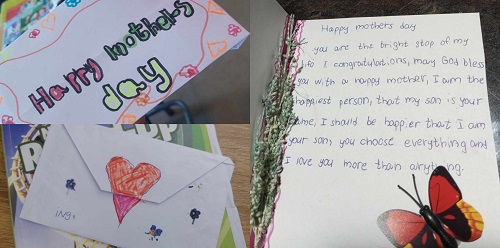 Happy mother's
day
Happy mothers day
you are the bright stop of my
life I congratulations, may God bless
you with a happy mother, I aim the
happiest person, that my son is your
me, I should be happier that I am
your son, you choose everything and
I love you more than anything.